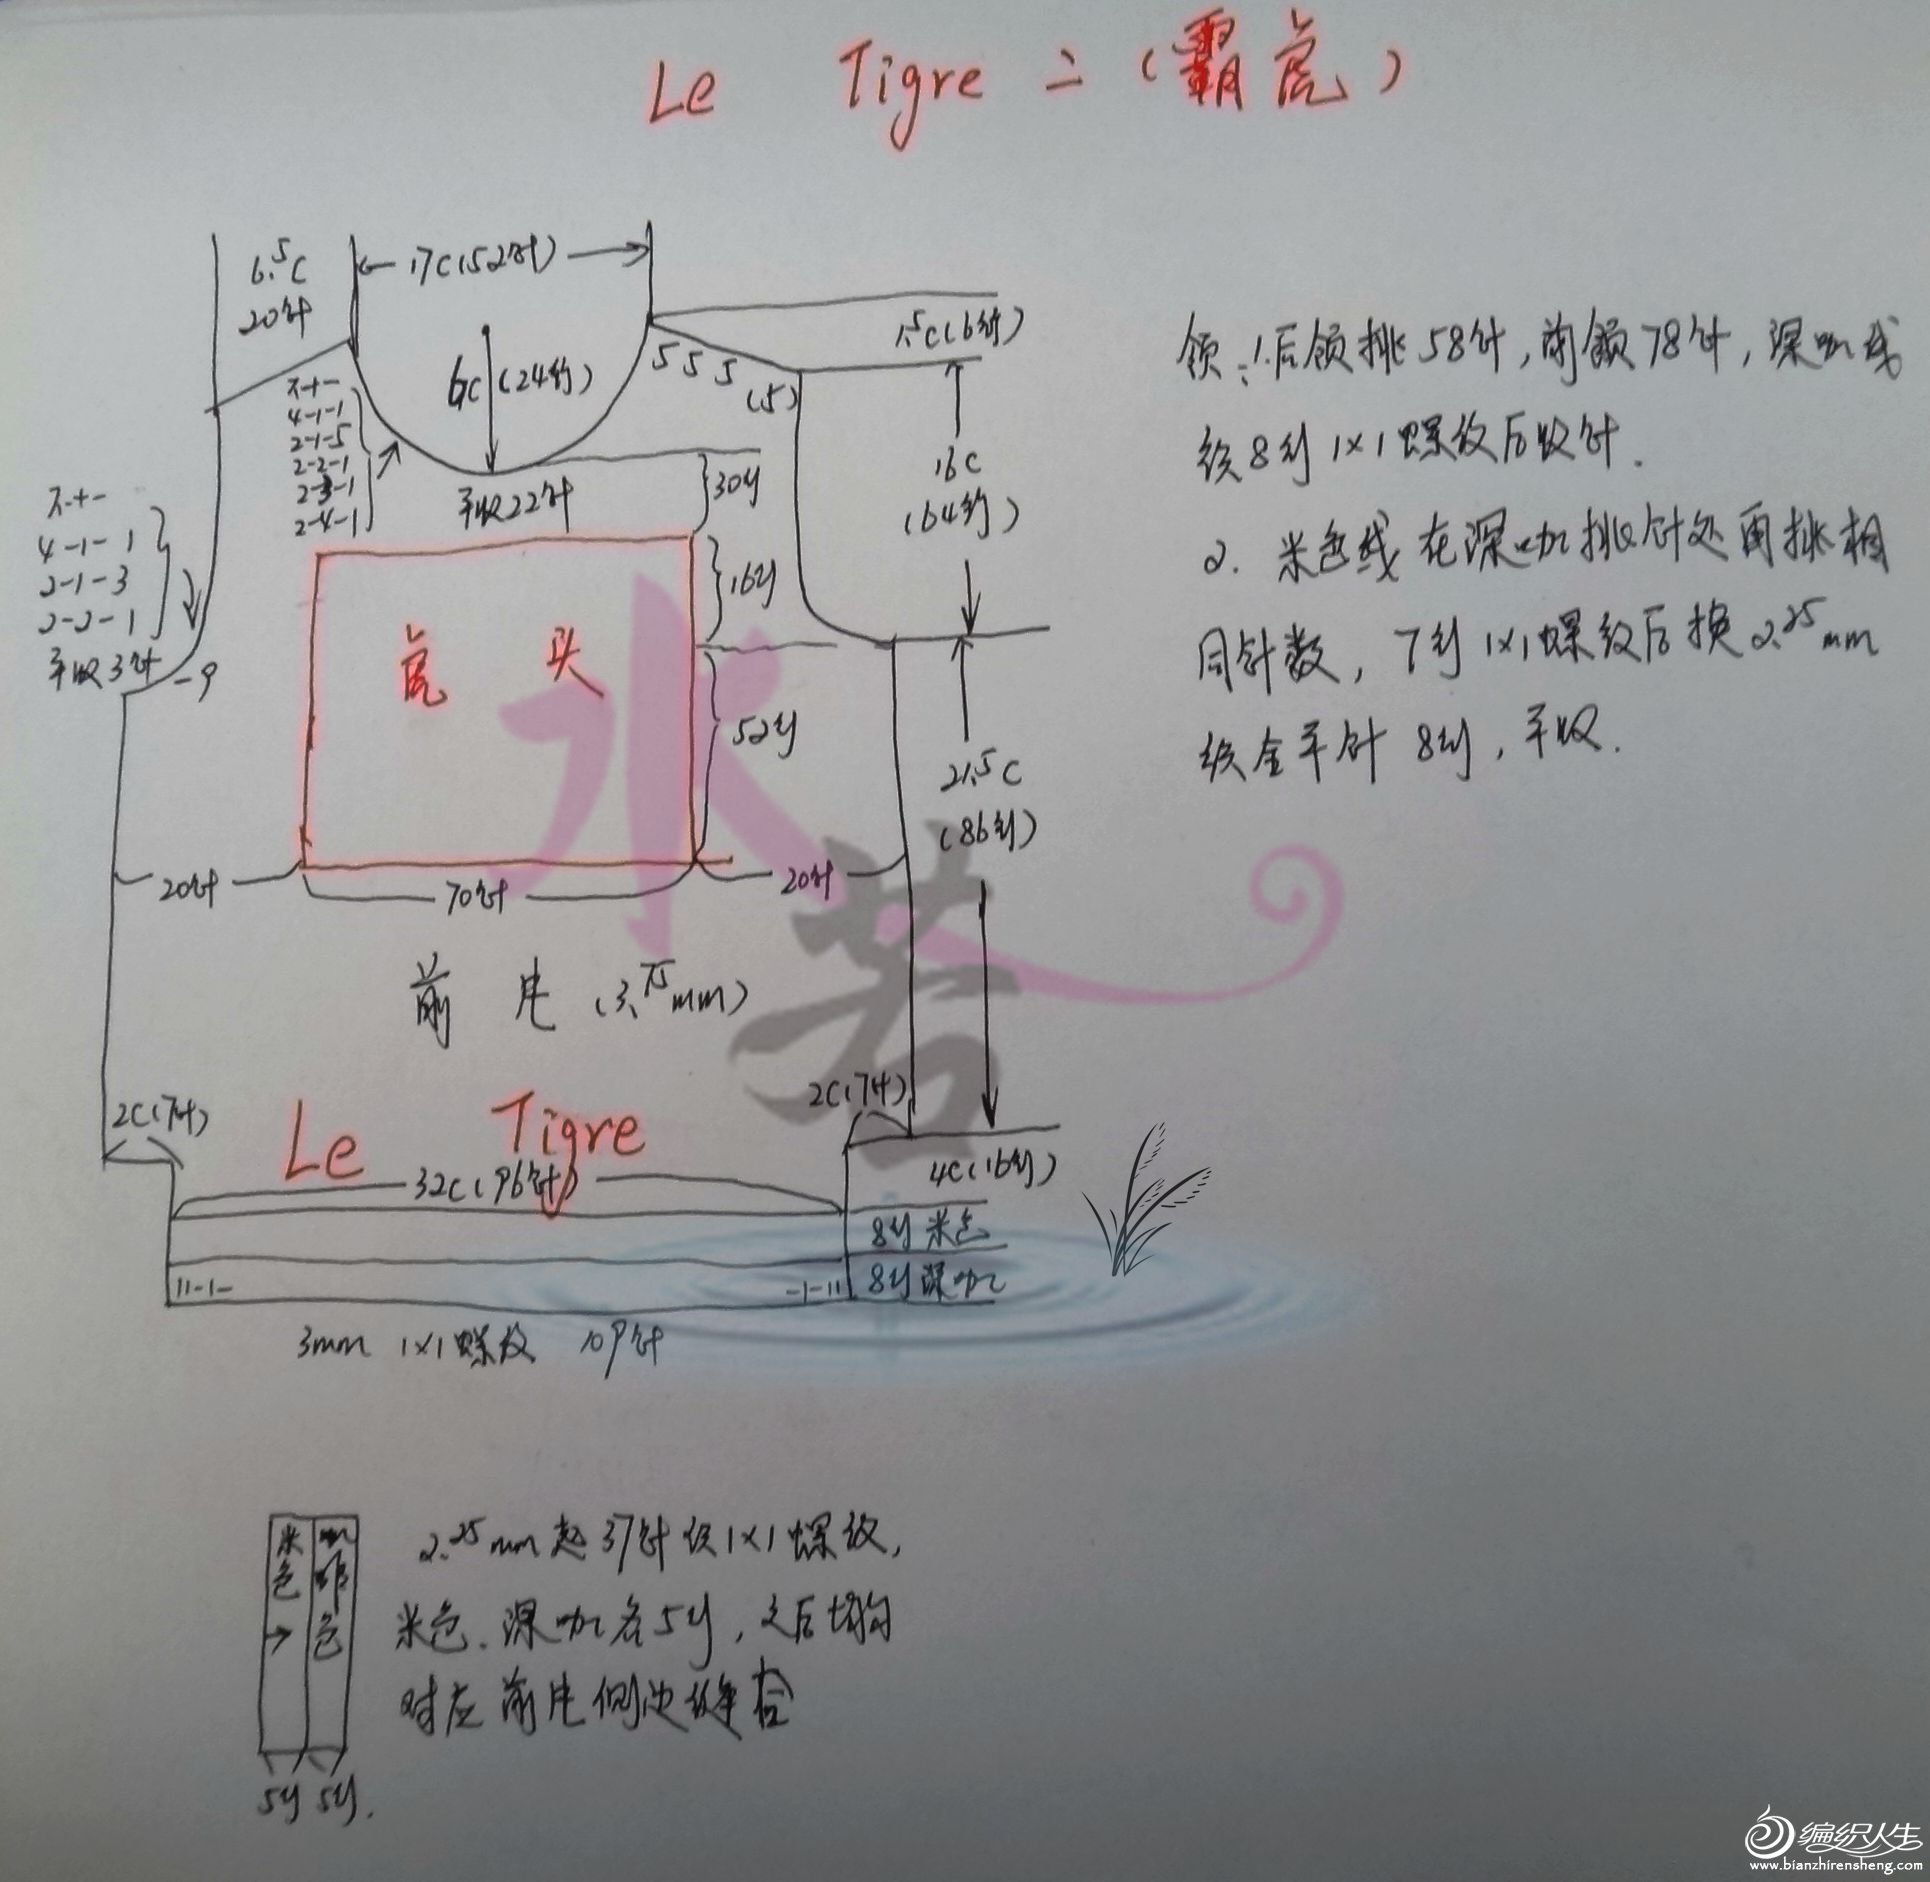 Le Tigre 二 (霸虎)
6.5C
20针
17C(52针)
1.5C(6行)
6C(24行)
5 5 5 (5)
不+-
4-1-1
2-1-5
2-2-1
2-3-1
2-4-1
平收22针
30行
16C
(64行)
不+-
4-1-1
2-1-3
2-2-1
平收3针
-9
16行
虎 头
52行
21.5C
(86行)
20针
70针
20针
前 片 (3.75mm)
2C(7针)
2C(7针)
Le Tigre
32C(96针)
4C(16行)
8行 米色
8行 深咖
11-1-
-1-11
3mm 1×1螺纹 109针
领:1.后领挑58针,前领78针,深咖线
织8行1×1螺纹后收针.
2. 米色线在深咖挑针处再挑相
同针数,7行1×1螺纹后换2.25mm
织全平针 8行,平收.
米色→
咖啡色
5行 5行.
2.25mm起37针织1×1螺纹,
米色.深咖各5行,之后均
对应前片侧边缝合
水若
编织人生
www.bianzhirensheng.com